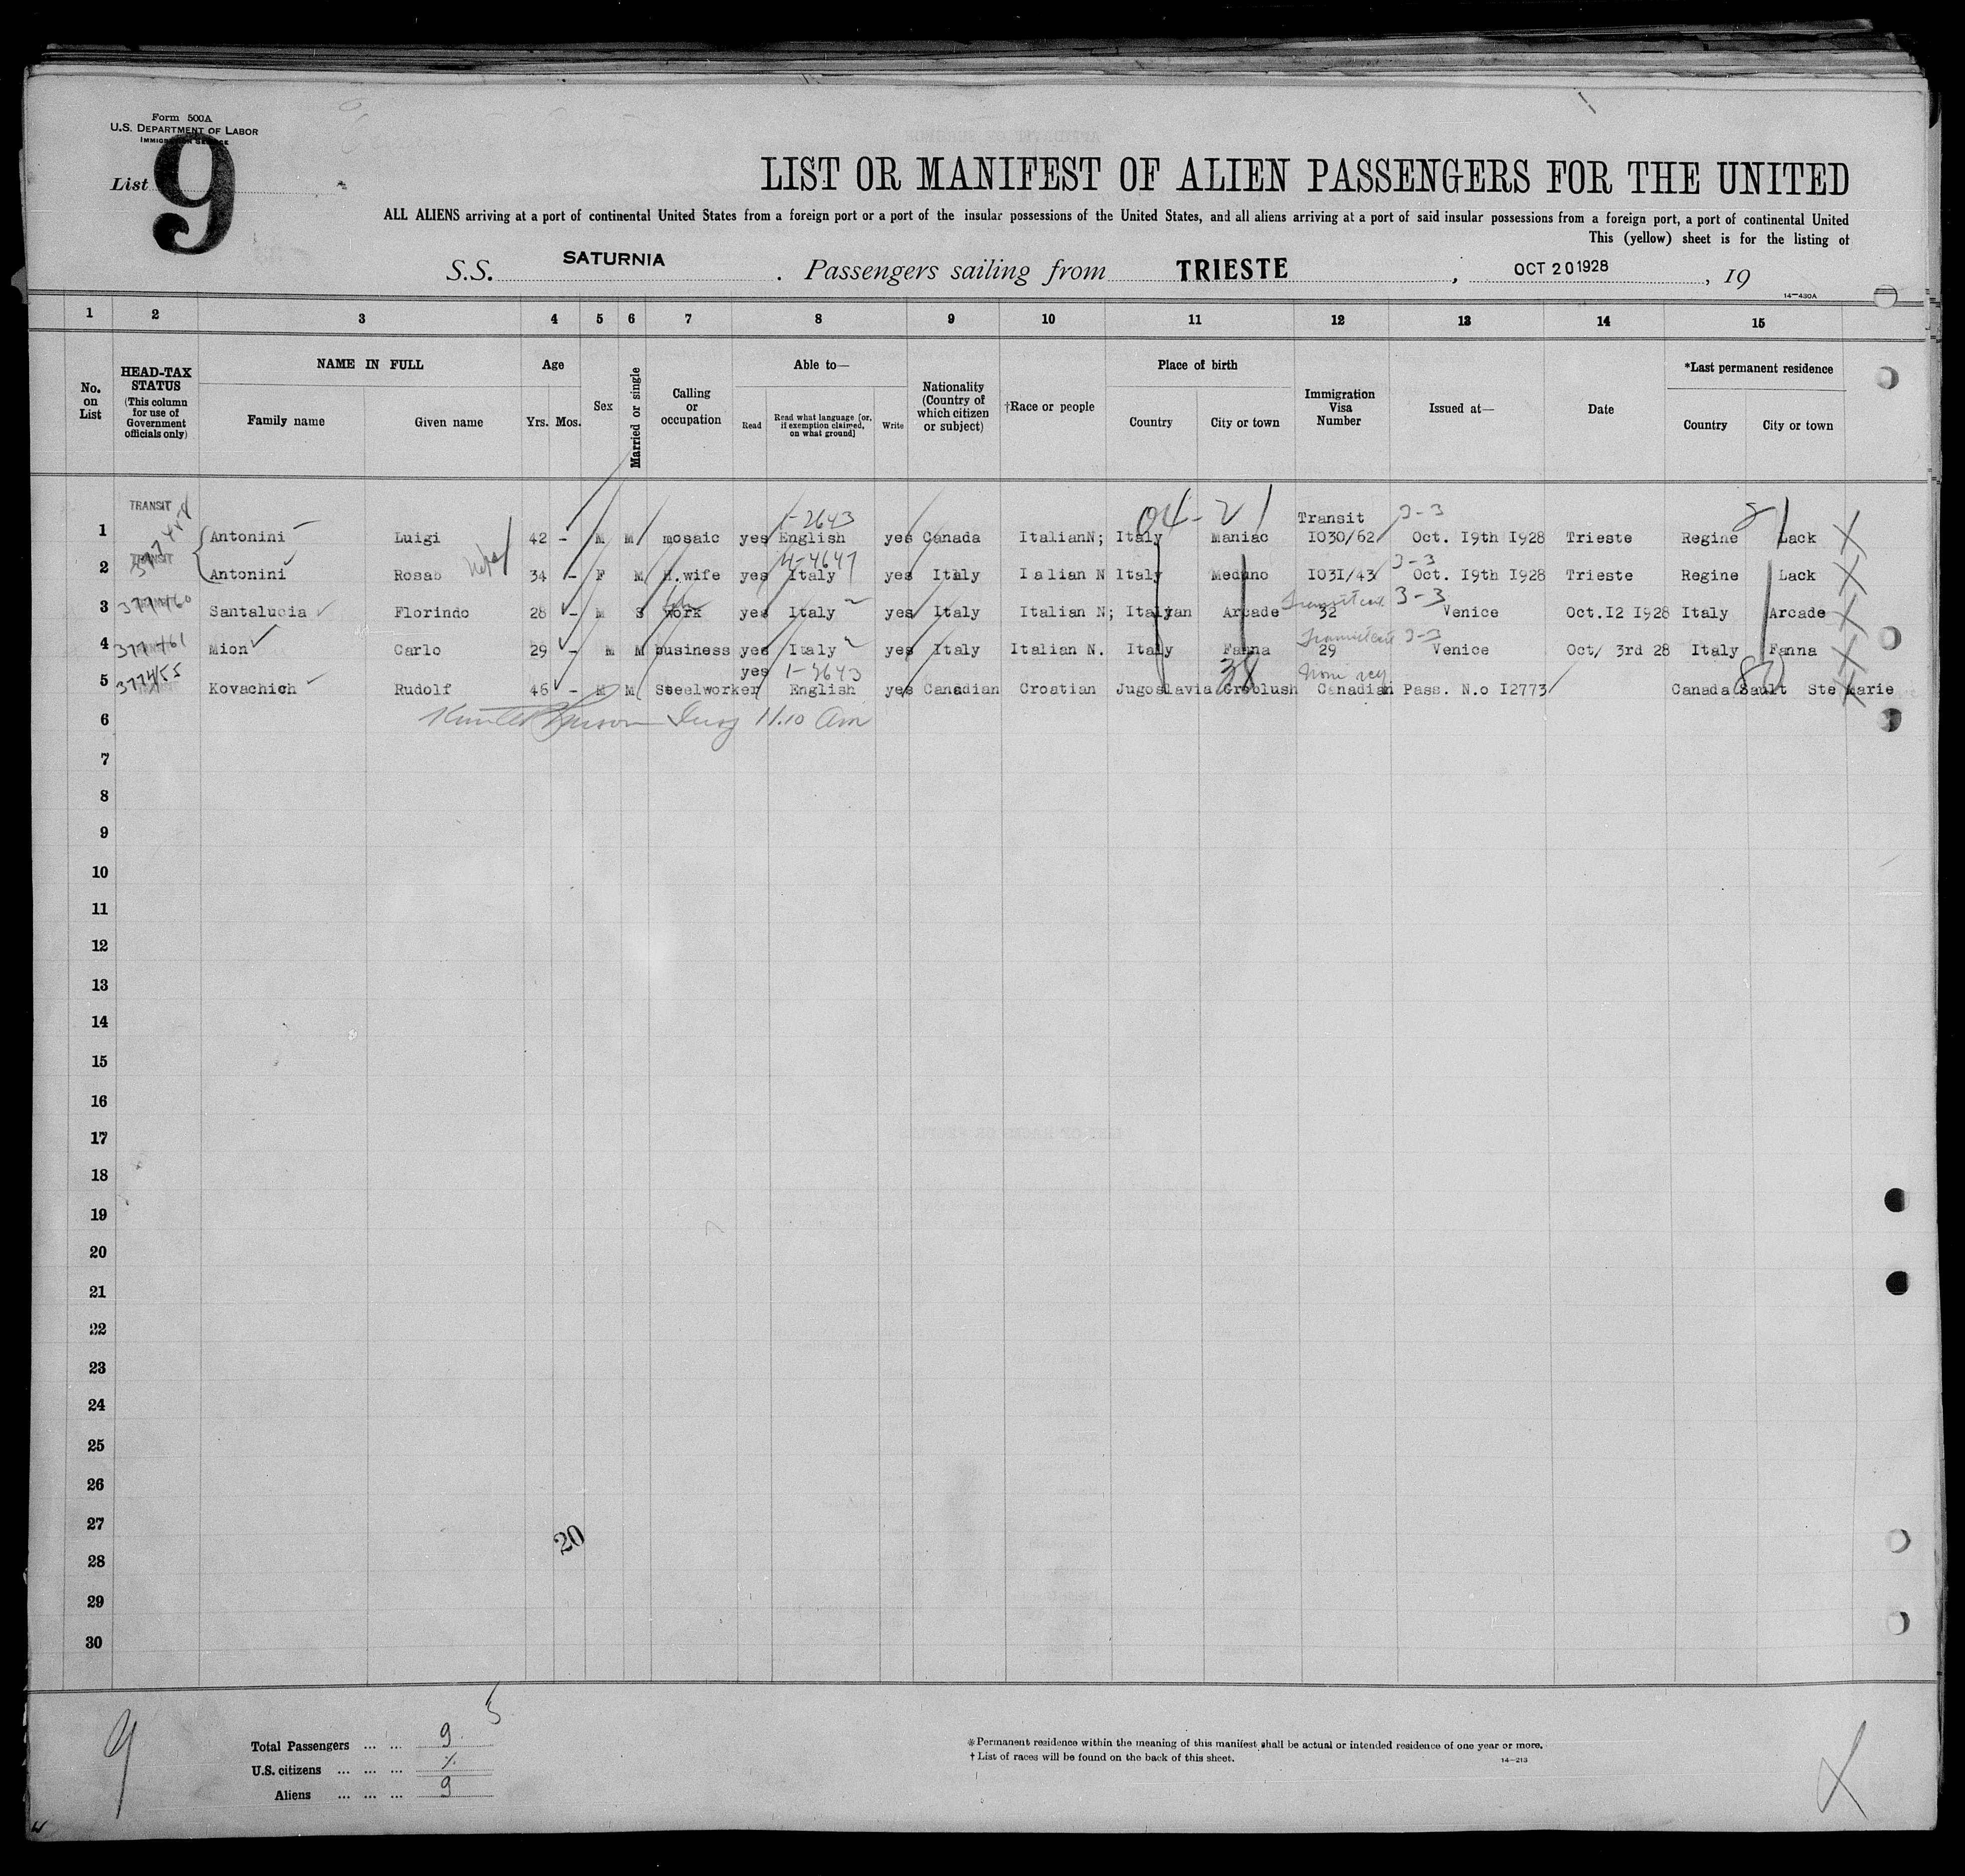 Form 500A
U.S. DEPARTMENT OF LABOR
IMMIGRATION SERVICE
List 9
LIST OR MANIFEST OF ALIEN PASSENGERS FOR THE UNITED
ALL ALIENS arriving at a port of continental United States from a foreign port or a port of the insular possessions of the United States, and all aliens arriving at a port of said insular possessions from a foreign port, a port of continental United
This (yellow) sheet is for the listing of
S.S. SATURNIA . Passengers sailing from TRIESTE , OCT 20 1928 , 19
14—430A
1 2 3 4 5 6 7 8 9 10 11 12 13 14 15
No. on List
HEAD-TAX STATUS (This column for use of Government officials only)
NAME IN FULL
Family name Given name
Age
Yrs. Mos.
Sex
Married or single
Calling or occupation
Able to—
Read Read what language [or, if exemption claimed, on what ground] Write
Nationality (Country of which citizen or subject)
†Race or people
Place of birth
Country City or town
Immigration Visa Number
Issued at—
Date
*Last permanent residence
Country City or town
TRANSIT 1-2643 04-21 Transit 3-3 81
1 Antonini Luigi 42 - M M mosaic yes English yes Canada ItalianN; Italy Maniac I030/62 Oct. I9th I928 Trieste Regine Lack
TRANSIT 4-4647 3-3
2 Antonini Rosab 34 - F M H.wife yes Italy yes Italy Ialian N Italy Meduno I03I/43 Oct. I9th I928 Trieste Regine Lack
3-3
3 377460 Santalucia Florindo 28 - M S work yes Italy yes Italy Italian N; Italyan Arcade 32 Venice Oct.I2 I928 Italy Arcade
3-3
4 377461 Mion Carlo 29 - M M business yes Italy yes Italy Italian N. Italy Fanna 29 Venice Oct/ 3rd 28 Italy Fanna
yes 1-2643 38
5 377455 Kovachich Rudolf 46 - M M Steelworker English yes Canadian Croatian Jugoslavia Groblush Canadian Pass. N.o I2773 Canada Sault Ste Marie
6 11.10 Am
7
8
9
10
11
12
13
14
15
16
17
18
19
20
21
22
23
24
25
26
27
20
28
29
30
9
5
Total Passengers ... ... 9
U.S. citizens ... ... ... %
Aliens ... ... ... 9
* Permanent residence within the meaning of this manifest shall be actual or intended residence of one year or more.
† List of races will be found on the back of this sheet.
14—213